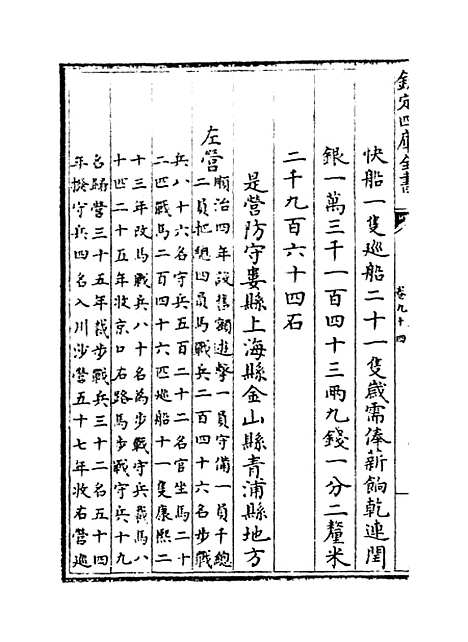 欽定四庫全書
卷九十四
快船一隻巡船二十一隻歲需俸薪餉乾連閏
銀一萬三千一百四十三兩九錢一分二釐米
二千九百六十四石
是營防守婁縣上海縣金山縣青浦縣地方
左營順治四年設舊額遊擊一員守備一員千總
二員把總四員馬戰兵二百四十六名步戰
兵八十六名守兵五百二十二名官坐馬二十
二匹戰馬二百四十六匹巡船十一隻康熙二
十三年改馬戰兵八十名為步戰守兵裁馬八
十匹二十五年收京口右路馬步戰守兵十九
名歸營三十五年裁步戰兵三十二名五十四
年撥守兵四名入川沙營五十七年收右營巡